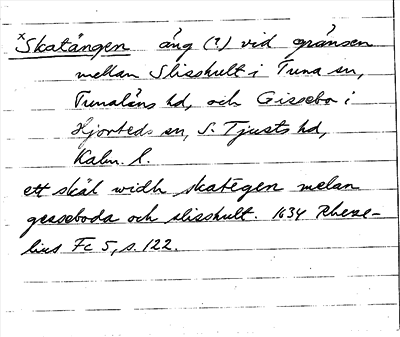 ×Skatängen äng (?) vid gränsen
mellan Slisshult i Tuna sn,
Tunaläns hd, och Gissebo i
Hjorteds sn, S. Tjusts hd,
Kalm. l.
ett skäl widh skategen melan
gesseboda och slisshult. 1634 Rheze-
lius Fc 5, s. 122.